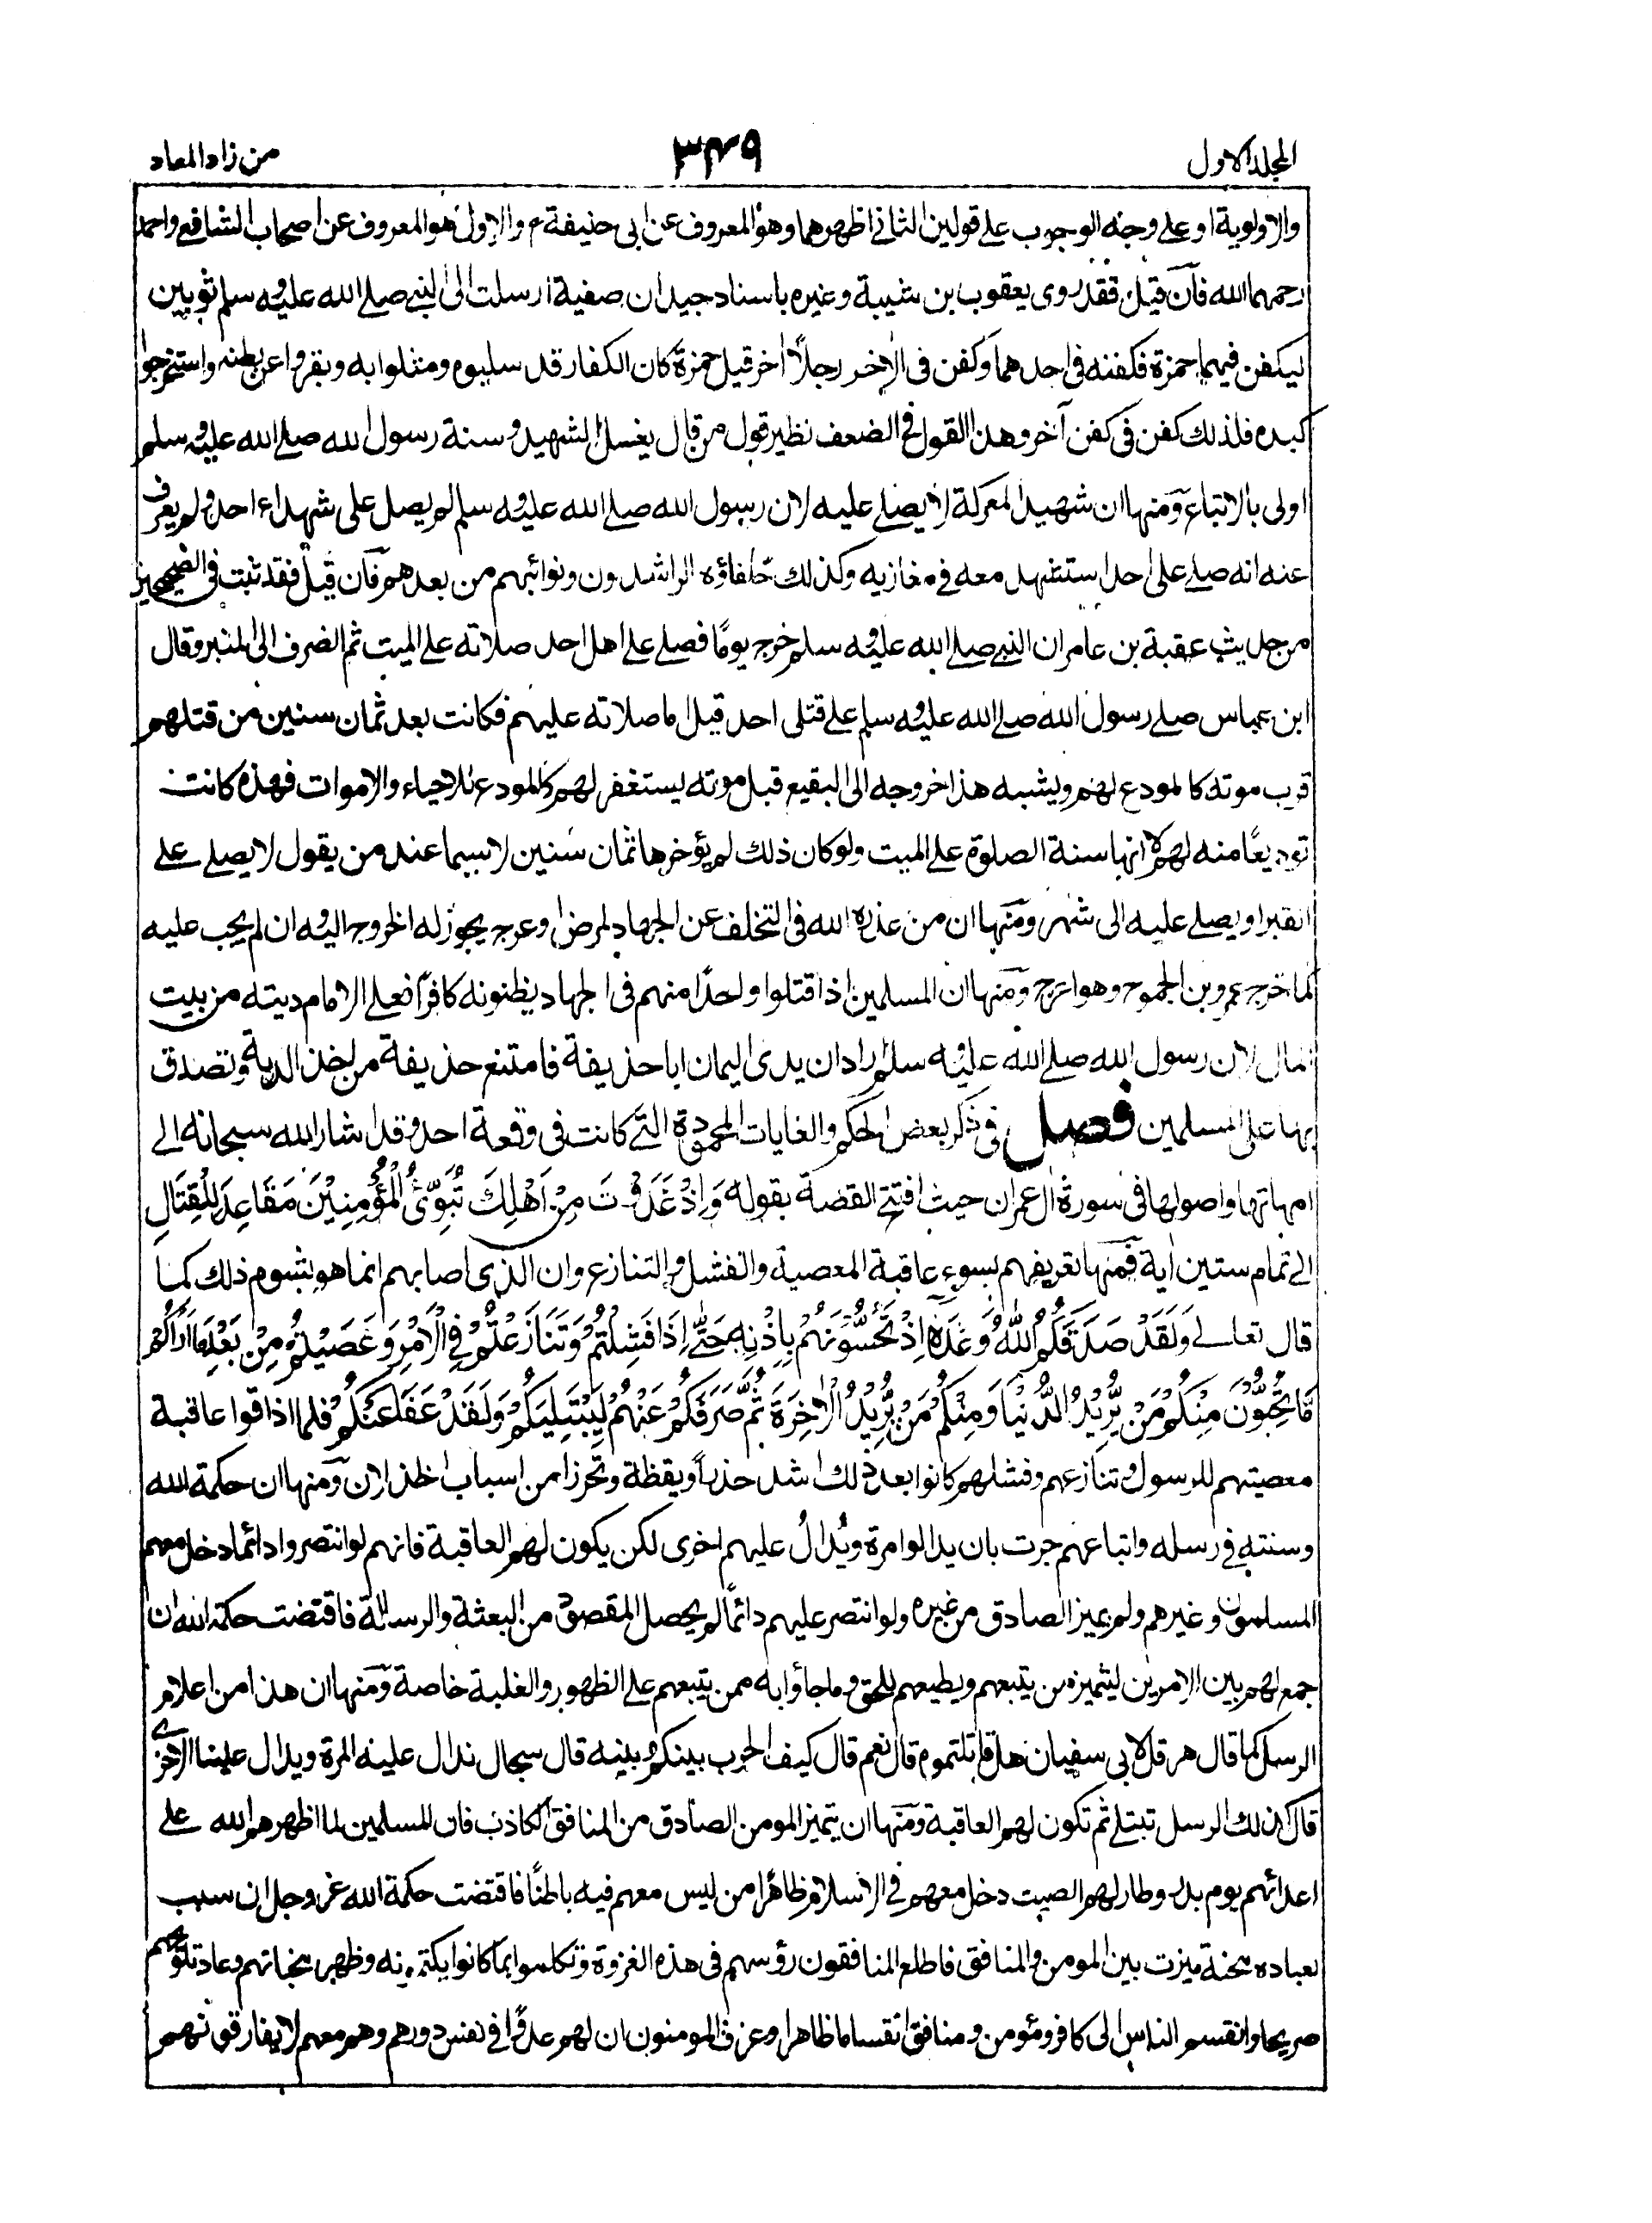 المجلد الاول
٣٤٩
من زاد المعاد
والاولوية او على وجه الوجوب على قولين الثاني اظهرهما وهو المعروف عن ابى حنيفة ۴ والاول هو المعروف عن اصحاب الشافعي واحمد
رحمهما الله فان قيل فقد روى يعقوب بن شيبة وغيره باسناد جيد ان صفية ارسلت الى النبي صلے الله عليه وسلم ثوبين
ليكفن فيهما حمزة فكفنه في احدهما وكفن في الاخر رجلًا اخر قيل حمزة كان الكفار قد سلبوه ومثلوا به وبقروا عن بطنه واستخرجوا
كبده فلذلك كفن في كفن آخر وهذا القول في الضعف نظير قول من قال يغسل الشهيد وسنة رسول الله صلے الله عليه وسلم
اولى بالاتباع ومنها ان شهيد المعركة لا يصلے عليه لان رسول الله صلے الله عليه وسلم لم يصل على شهداء احد ولم يعرف
عنه انه صلے على احد استشهد معه في مغازيه وكذلك خلفاؤه الراشدون ونوائبهم من بعدهم فان قيل فقد ثبت في الصحيحين
من حديث عقبة بن عامر ان النبي صلے الله عليه وسلم خرج يومًا فصلے على اهل احد صلاته على الميت ثم انصرف الى المنبر وقال
ابن عباس صلے رسول الله صلے الله عليه وسلم على قتلى احد قيل اما صلاته عليهم فكانت بعد ثمان سنين من قتلهم
قرب موته كالمودع لهم ويشبه هذا خروجه الى البقيع قبل موته يستغفر لهم كالمودع للاحياء والاموات فهذه كانت
توديعًا منه لهم لا انها سنة الصلوة على الميت ولو كان ذلك لم يؤخرها ثمان سنين لاسيما عند من يقول لا يصلے على
القبر او يصلے عليه الى شهر ومنها ان من عذره الله في التخلف عن الجهاد لمرض او عرج يجوز له الخروج اليه وان لم يجب عليه
كما خرج عمرو بن الجموح وهو اعرج ومنها ان المسلمين اذا قتلوا واحدًا منهم في الجهاد يظنونه كافرًا فعلى الامام ديته من بيت
المال لان رسول الله صلے الله عليه وسلم اراد ان يدى اليمان ابا حذيفة فامتنع حذيفة من اخذ الدية وتصدق
بها على المسلمين فصل في ذكر بعض الحكم والغايات المحمودة التي كانت في وقعة احد وقد اشار الله سبحانه الى
امهاتها واصولها في سورة اٰل عمران حيث افتتح القصة بقوله وَاِذْ غَدَوْتَ مِنْ اَهْلِكَ تُبَوِّئُ الْمُؤْمِنِيْنَ مَقَاعِدَ لِلْقِتَالِ
الى تمام ستين اٰية فمنها تعريفهم بسوء عاقبة المعصية والفشل والتنازع وان الذي اصابهم انما هو بشوم ذلك كما
قال تعالے وَلَقَدْ صَدَقَكُمُ اللّٰهُ وَعْدَهٗ اِذْ تَحُسُّوْنَهُمْ بِاِذْنِهٖ حَتّٰى اِذَا فَشِلْتُمْ وَتَنَازَعْتُمْ فِي الْاَمْرِ وَعَصَيْتُمْ مِنْ بَعْدِ مَا اَرَاكُمْ
مَّا تُحِبُّوْنَ مِنْكُمْ مَنْ يُّرِيْدُ الدُّنْيَا وَمِنْكُمْ مَنْ يُّرِيْدُ الْاٰخِرَةَ ثُمَّ صَرَفَكُمْ عَنْهُمْ لِيَبْتَلِيَكُمْ وَلَقَدْ عَفَا عَنْكُمْ فلما ذاقوا عاقبة
معصيتهم للرسول وتنازعهم وفشلهم كانوا بعد ذلك اشد حذرًا ويقظة وتحرزا من اسباب الخذلان ومنها ان حكمة الله
وسنته في رسله واتباعهم جرت بان يدالوا مرة ويُدالُ عليهم اخرى لكن يكون لهم العاقبة فانهم لو انتصروا دائما دخل معهم
المسلمون وغيرهم ولم يميز الصادق من غيره ولو انتصر عليهم دائمًا لم يحصل المقصود من البعثة والرسالة فاقتضت حكمة الله ان
جمع لهم بين الامرين ليتميز من يتبعهم ويطيعهم للحق وما جاؤا به ممن يتبعهم على الظهور والغلبة خاصة ومنها ان هذا من اعلام
الرسل كما قال هرقل لابى سفيان هل قاتلتموه قال نعم قال كيف الحرب بينكم وبينه قال سجال ندال عليه المرة ويدال علينا الاخرے
قال كذلك الرسل تبتلے ثم تكون لهم العاقبة ومنها ان يتميز المومن الصادق من المنافق الكاذب فان المسلمين لما اظهرهم الله على
اعدائهم يوم بدر وطار لهم الصيت دخل معهم في الاسلام ظاهرًا من ليس معهم فيه باطنًا فاقتضت حكمة الله عز وجل ان سبب
لعباده محنة ميزت بين المومن والمنافق فاطلع المنافقون رؤسهم في هذه الغزوة وتكلموا بما كانوا يكتمونه وظهر مخباتهم وعاد تلويحهم
صريحا وانقسم الناس الى كافر ومؤمن ومنافق انقساما ظاهرا وعرف المومنون ان لهم عدوًا في نفس دورهم وهم معهم لا يفارقونهم